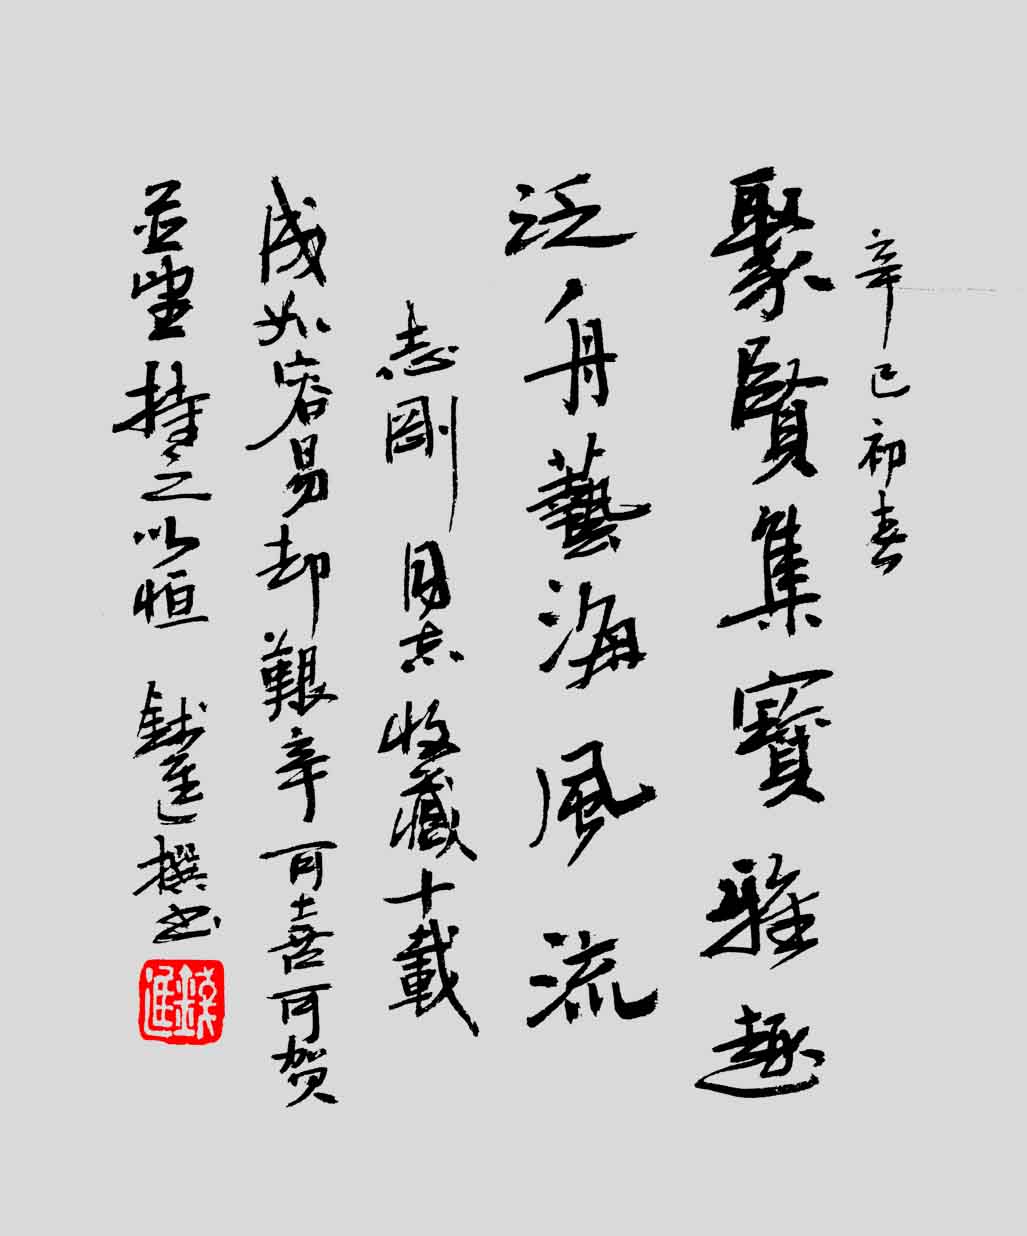 辛巳初春
聚賢集寶雅趣
泛舟藝海風流
志剛同志收藏十載
成如容易却艱辛可喜可贺
並望持之以恒 錢進撰书
錢進